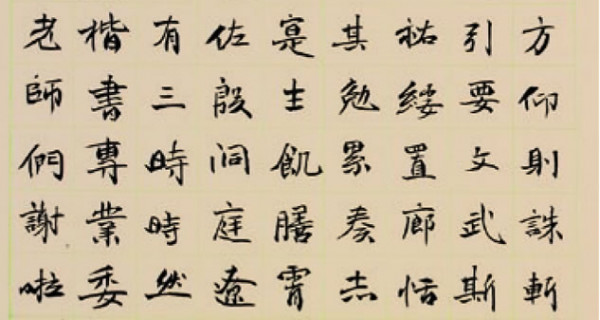 方仰則誅斬
引要文武斯
祐綏置廊恬
其勉累奏志
寔士飢膳霄
佐殷洞庭遼
有三時時然
楷書專業委
老師們謝啦